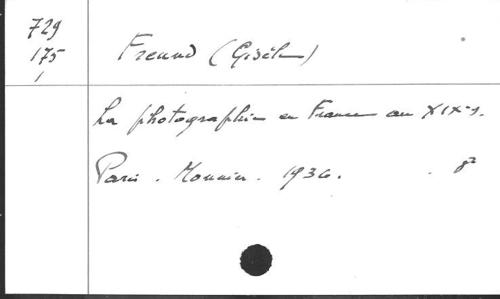 729
175
1
Freund (Gisèle)
La photographie en France au XIXe s.
Paris. Monnier. 1936. 8°